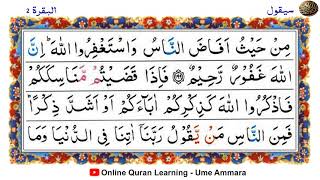 البقرة ٢
سيقول
مِنْ حَيْثُ اَفَاضَ النَّاسُ وَاسْتَغْفِرُوا اللهَ ؕ اِنَّ
اللهَ غَفُوْرٌ رَّحِيْمٌ ﴿۱۹۹﴾ فَاِذَا قَضَيْتُمْ مَّنَاسِكَكُمْ
فَاذْكُرُوا اللهَ كَذِكْرِكُمْ اٰبَآءَكُمْ اَوْ اَشَدَّ ذِكْرًا ؕ
فَمِنَ النَّاسِ مَنْ يَّقُوْلُ رَبَّنَاۤ اٰتِنَا فِى الدُّنْيَا وَمَا
Online Quran Learning - Ume Ammara